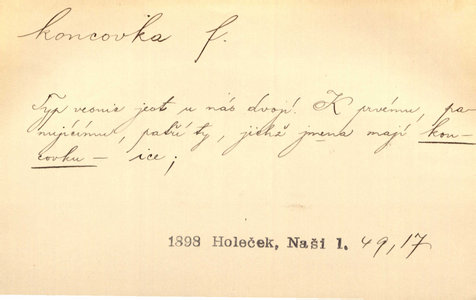 koncovka f.
Typ vesnic jest u nás dvojí. K prvému, pa-
nujícímu, patří ty, jichž jmena mají kon-
covku – ice;
1898 Holeček, Naši l. 49,17